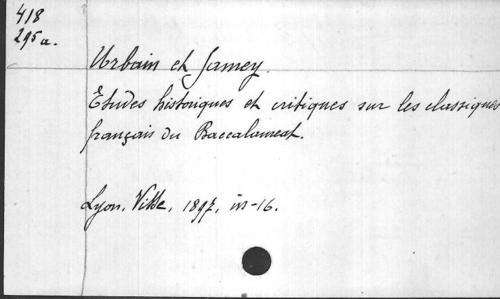 418
295a.
Urbain et Jamey.
Études historiques et critiques sur les classiques
français du Baccalauréat.
Lyon, Vitte, 1897, in-16.